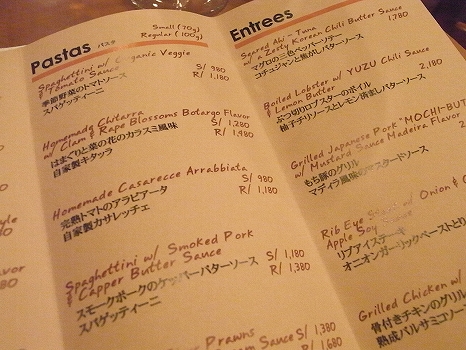 Pastas パスタ
Small (70g)
Regular (100g)
Spaghettini w/ Organic Veggie
& Tomato Sauce
S/ 980
R/ 1,180
季節野菜のトマトソース
スパゲッティーニ
Homemade Chitarra
w/ Clam & Rape Blossoms Botargo Flavor
S/ 1,280
R/ 1,480
はまぐりと菜の花のカラスミ風味
自家製キタッラ
Homemade Casarecce Arrabbiata
S/ 980
R/ 1,180
完熟トマトのアラビアータ
自家製カサレッチェ
Spaghettini w/ Smoked Pork
& Capper Butter Sauce
S/ 1,180
R/ 1,380
スモークポークのケッパーバターソース
スパゲッティーニ
Prawns
Sauce S/ 1,380
R/ 1,680
Entrees
Seared Ahi-Tuna
w/ a Zesty Korean Chili Butter Sauce
1,780
マグロの三色ペッパーソテー
コチュジャンと焦がしバターソース
Boiled Lobster w/ YUZU Chili Sauce
& Lemon Butter
2,180
ぶつ切りロブスターのボイル
柚子チリソースとレモン澄ましバターソース
Grilled Japanese Pork "MOCHI-BUT
w/ Mustard Sauce Madeira Flavor
もち豚のグリル
マディラ風味のマスタードソース
Rib Eye Steak w/ Onion &
Apple Soy Sauce
リブアイステーキ
オニオンガーリックペーストとり
Grilled Chicken w/
骨付きチキンのグリル
熟成バルサミコソー